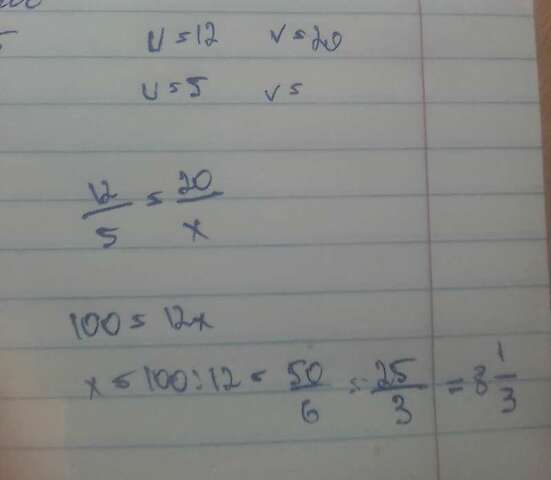 u = 12 v = 20
u = 5 v =
12/5 = 20/x
100 = 12x
x = 100 : 12 = 50/6 = 25/3 = 8 1/3